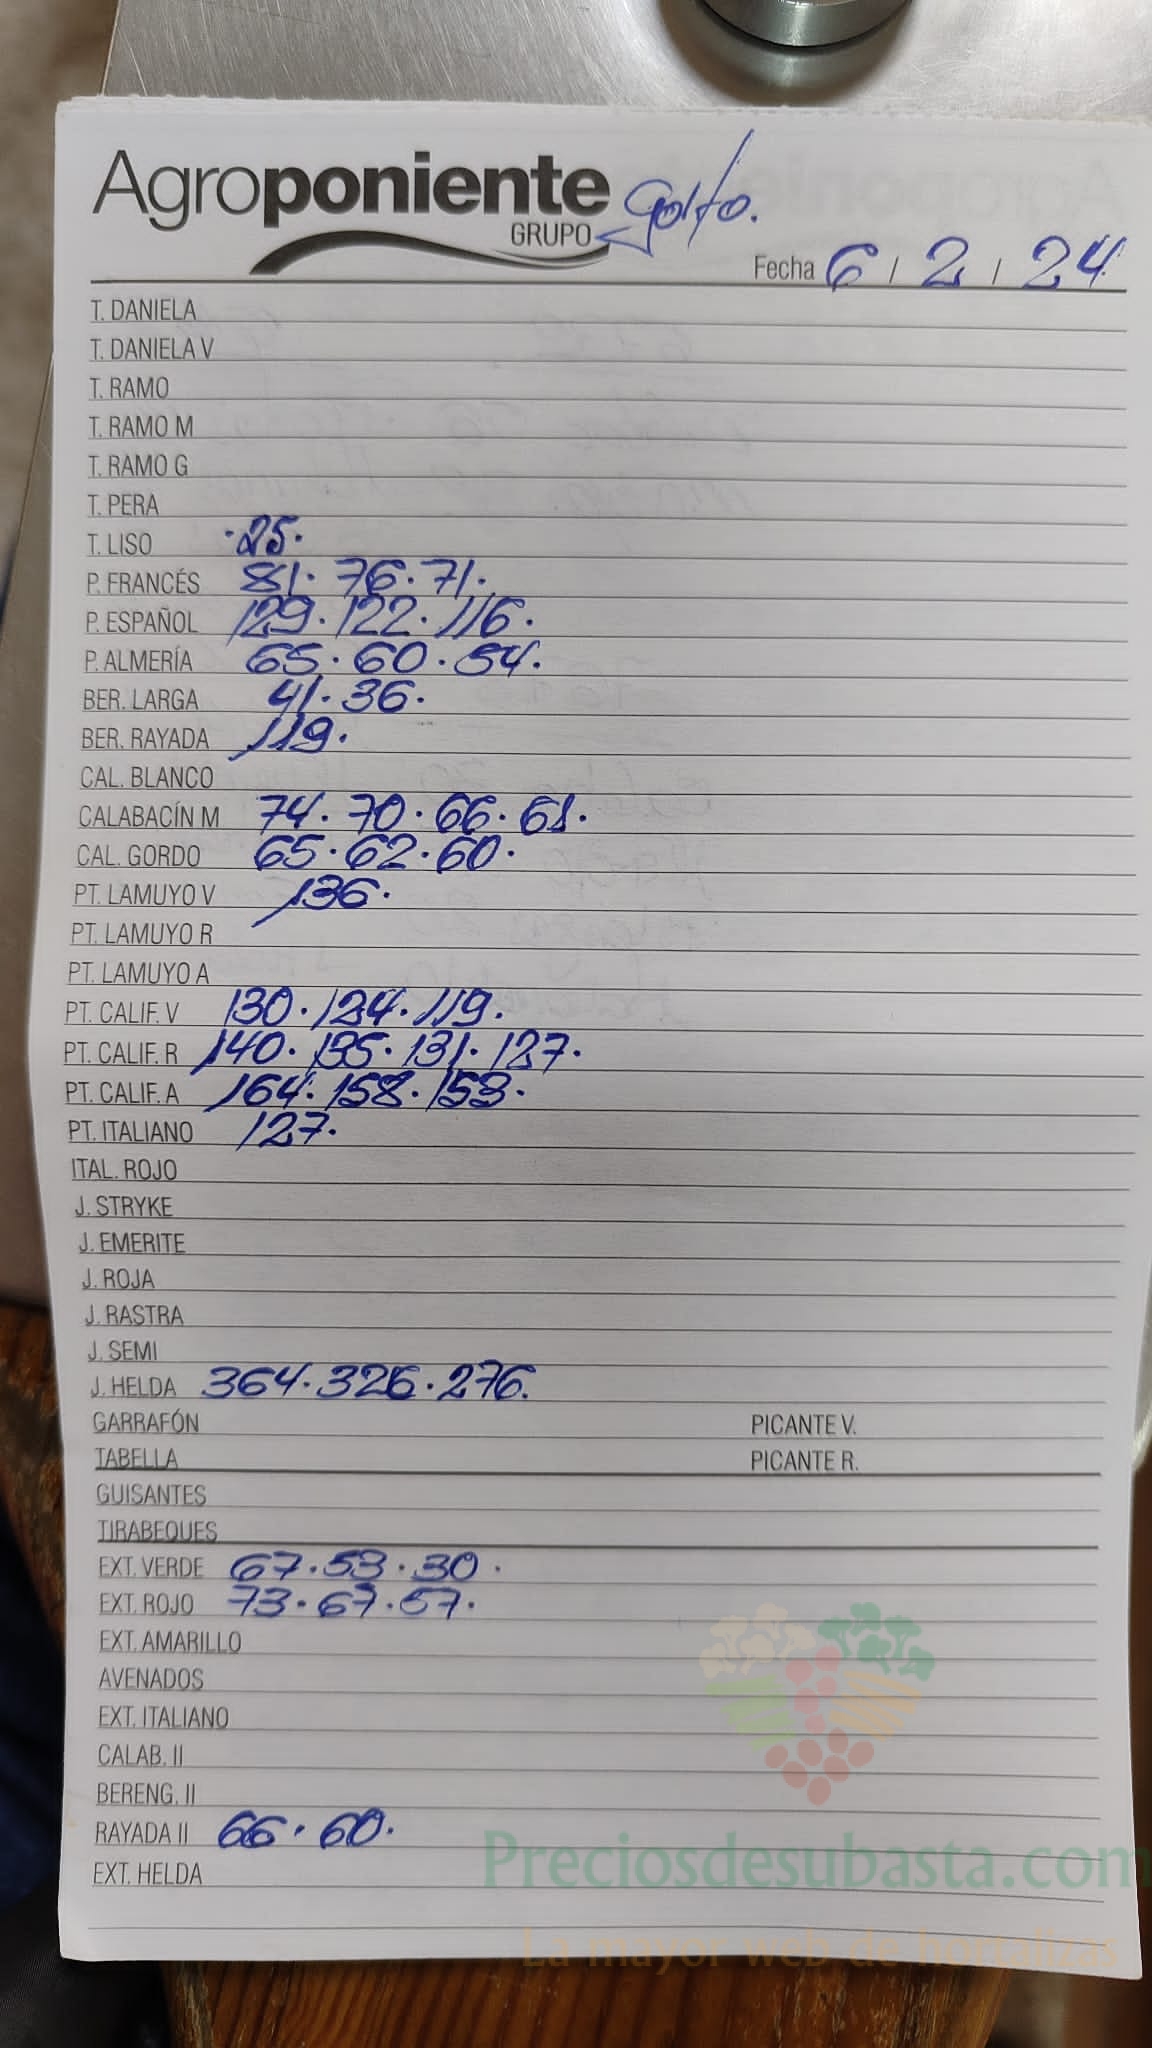 Agroponiente Golfo.
GRUPO
Fecha 6 / 2 / 24
T. DANIELA
T. DANIELA V
T. RAMO
T. RAMO M
T. RAMO G
T. PERA
T. LISO ·25·
P. FRANCÉS 81· 76· 71·
P. ESPAÑOL 129· 122· 116·
P. ALMERÍA 65· 60· 54·
BER. LARGA 41· 36·
BER. RAYADA 119·
CAL. BLANCO
CALABACÍN M 74· 70· 66· 61·
CAL. GORDO 65· 62· 60·
PT. LAMUYO V 136·
PT. LAMUYO R
PT. LAMUYO A
PT. CALIF. V 130· 124· 119·
PT. CALIF. R 140· 135· 131· 127·
PT. CALIF. A 164· 158· 153·
PT. ITALIANO 127·
ITAL. ROJO
J. STRYKE
J. EMERITE
J. ROJA
J. RASTRA
J. SEMI
J. HELDA 364· 326· 276.
GARRAFÓN PICANTE V.
TABELLA PICANTE R.
GUISANTES
TIRABEQUES
EXT. VERDE 67· 53· 30·
EXT. ROJO 73· 67· 57·
EXT. AMARILLO
AVENADOS
EXT. ITALIANO
CALAB. II
BERENG. II
RAYADA II 66· 60·
Preciosdesubasta.com
EXT. HELDA
La mayor web de hortalizas